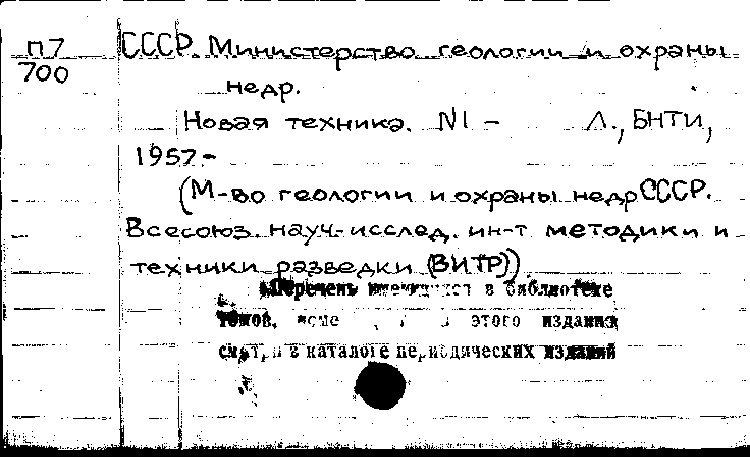 П7
700
СССР. Министерство геологии и охраны
недр.
Новая техника. N1 – Л., БНТИ,
1957-
(М-во геологии и охраны недр СССР.
Всесоюз. науч.-исслед. ин-т методики и
техники разведки (ВИТР))
Перечень имеющихся в библиотеке
томов, этого издания
смотри в каталоге периодических изданий